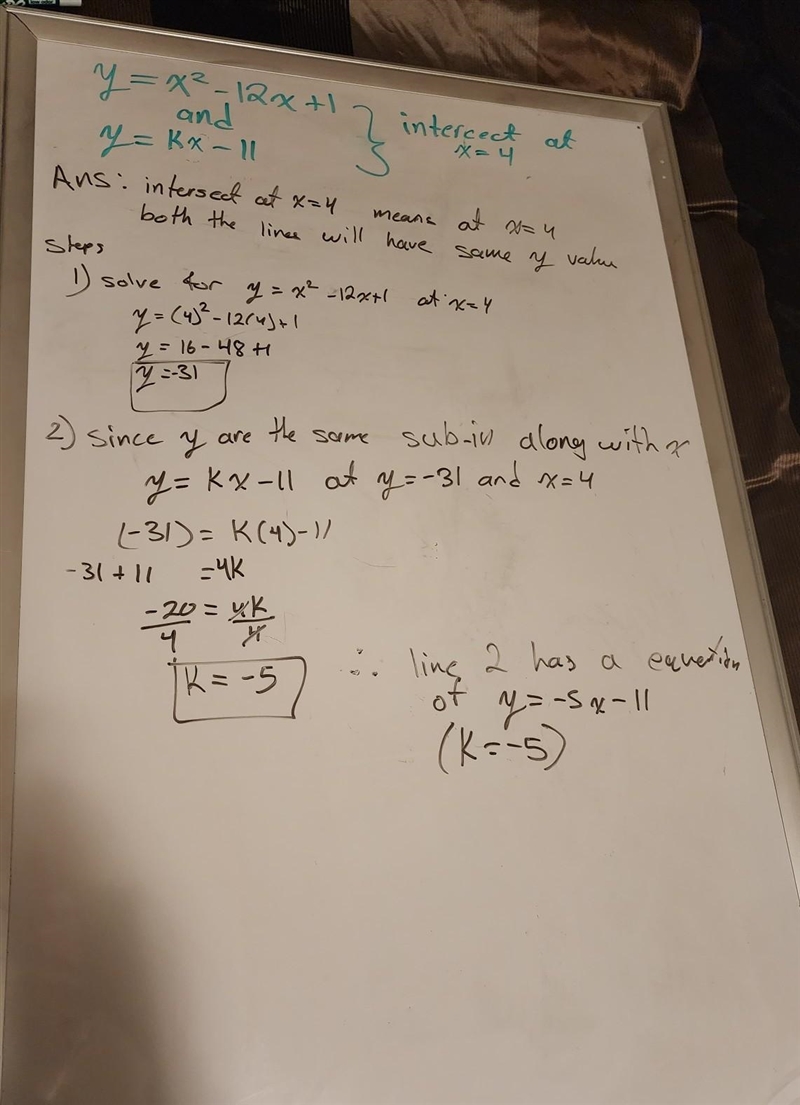 y = x² - 12x + 1
and
y = Kx - 11
} intercect at
x = 4
Ans: intersect at x=4 means at x=4
both the lines will have same y value
Steps
1) solve for y = x² - 12x+1 at x=4
y = (4)² - 12(4)+1
y = 16 - 48 +1
y = -31
2) Since y are the same sub-in along with x
y = Kx - 11 at y = -31 and x=4
(-31) = K(4) - 11
-31 + 11 = 4K
-20/4 = 4K/4
K = -5
∴ line 2 has a equation
of y = -5x - 11
(K = -5)